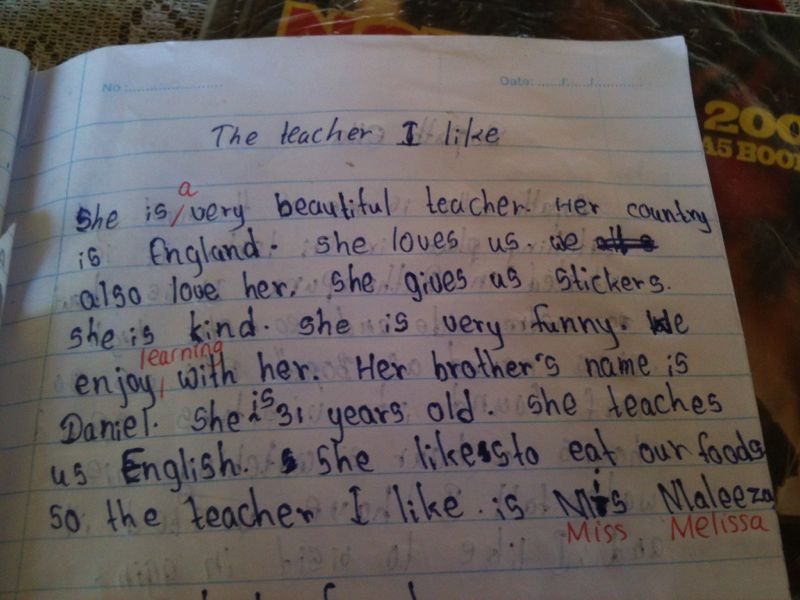 No :
Date: ..../..../
200
A5 BOO
The teacher I like
a
She is very beautiful teacher. Her country
is England. she loves us. we
also love her. she gives us stickers.
she is kind. she is very funny. We
learning
enjoy with her. Her brother's name is
Daniel. She is 31 years old. she teaches
us English. She likes to eat our foods
so the teacher I like. is Mis Maleeza
Miss Melissa